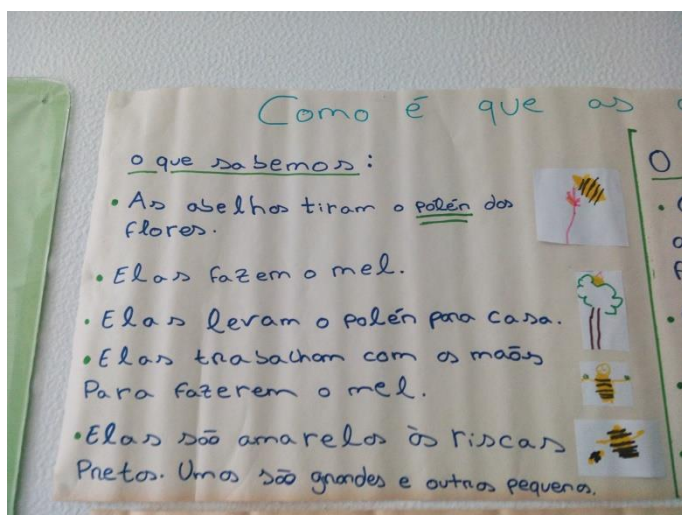 Como é que as
o que sabemos:
• As abelhas tiram o polén das
flores.
• Elas fazem o mel.
• Elas levam o polén para casa.
• Elas trabalham com as maõs
Para fazerem o mel.
• Elas são amarelas às riscas
Pretas. Umas são grandes e outras pequenas.
O